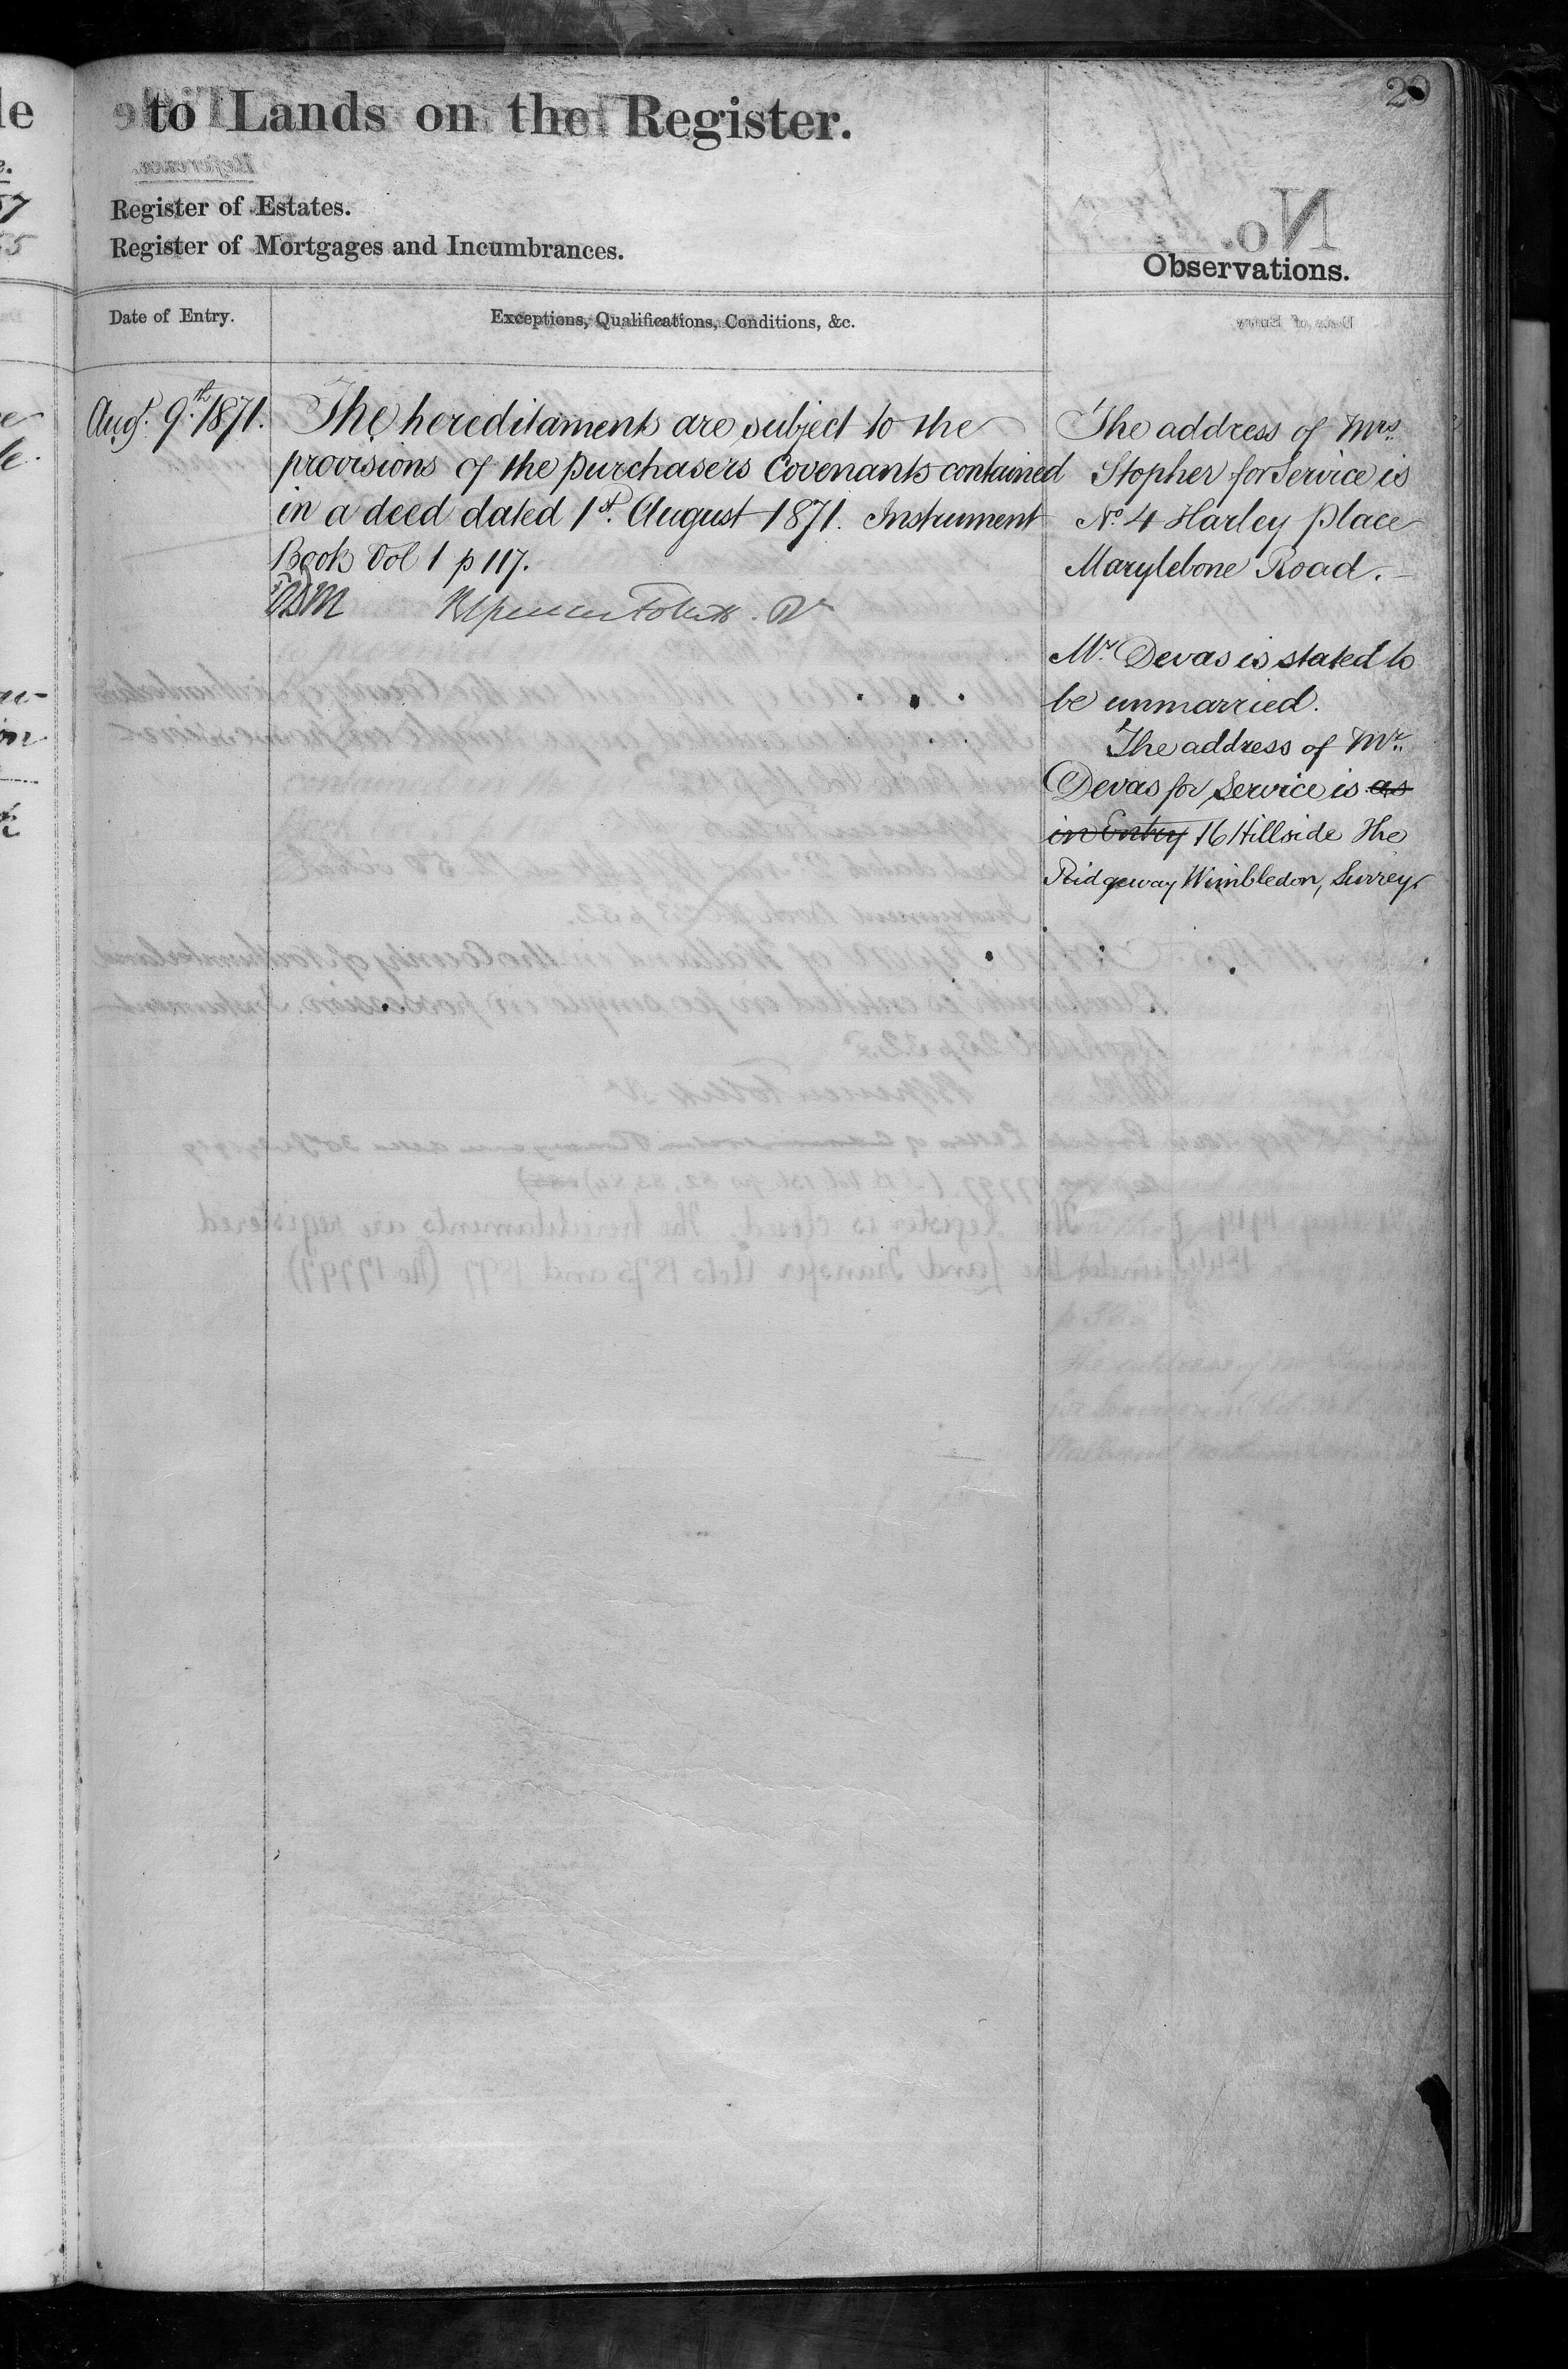 29
to Lands on the Register.
Register of Estates.
Register of Mortgages and Incumbrances.
Observations.
Date of Entry.
Exceptions, Qualifications, Conditions, &c.
Augt. 9th. 1871.
The hereditaments are subject to the
provisions of the purchasers Covenants contained
in a deed dated 1st. August 1871. Instrument
Book Vol 1 p 117.
The address of Mrs.
Stopher for Service is
No. 4 Harley Place
Marylebone Road.
Mr. Devas is stated to
be unmarried.
The address of Mr.
Devas for Service is as
in Entry 16 Hillside The
Ridgeway Wimbledon, Surrey.